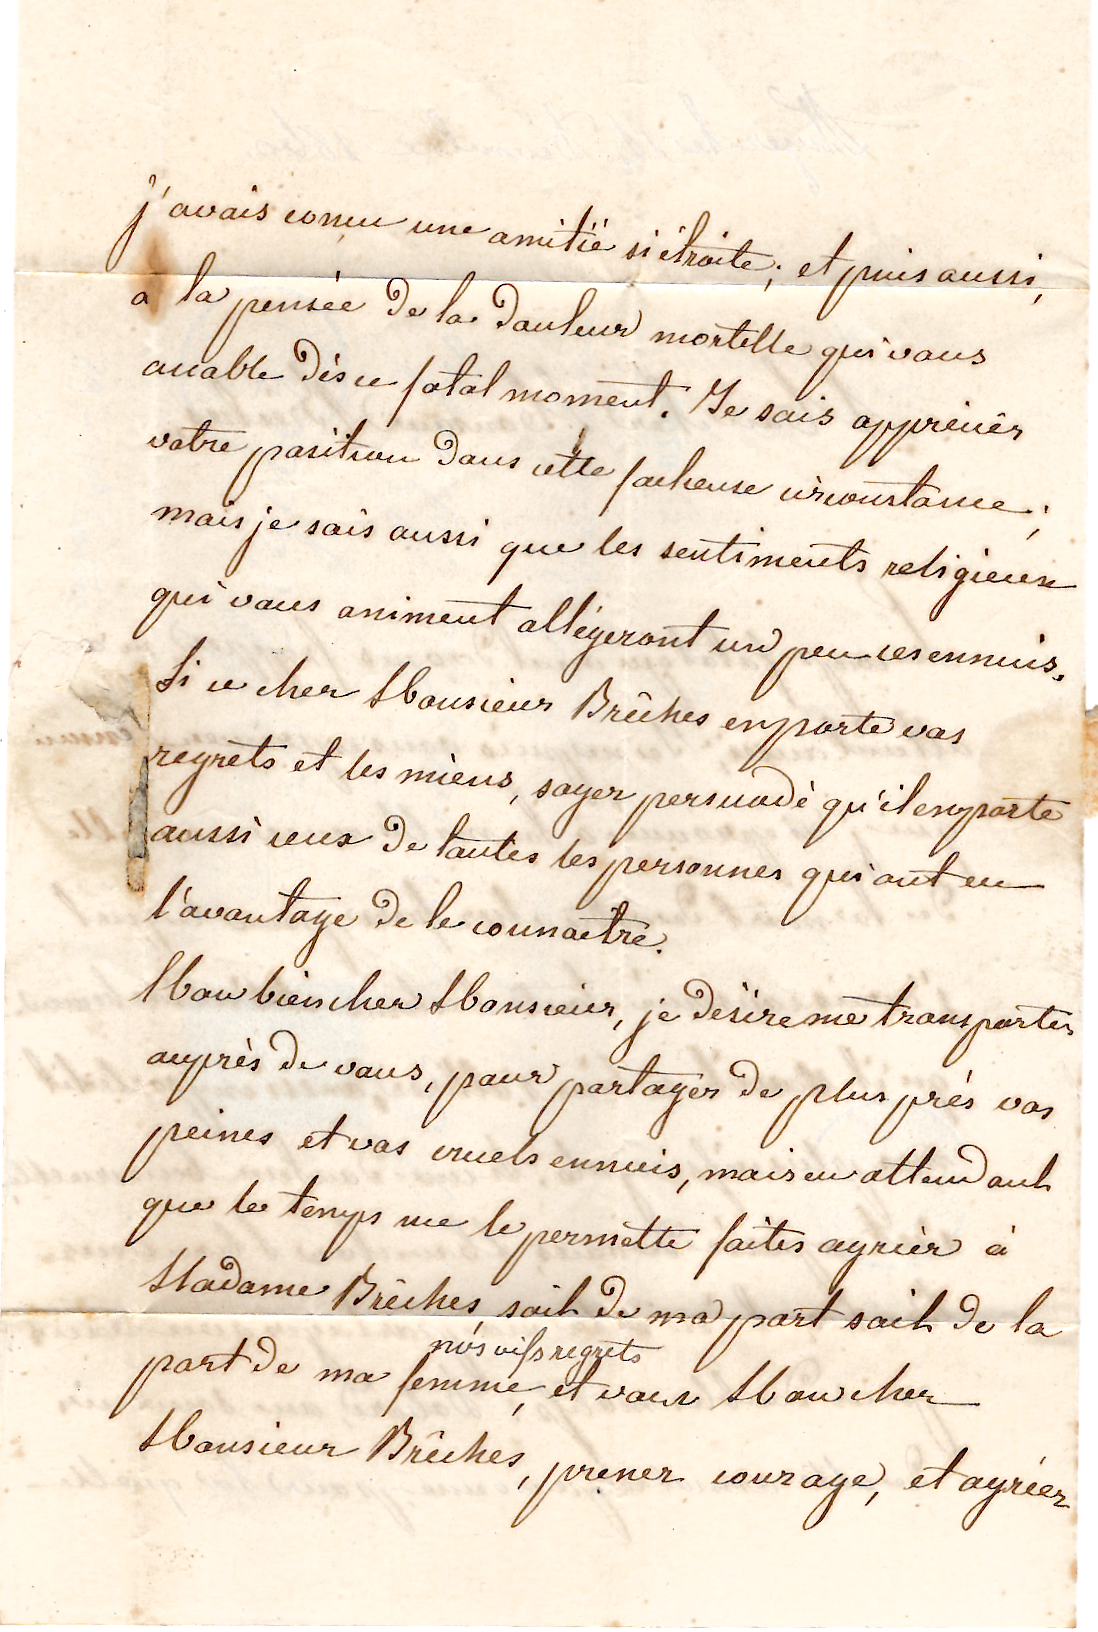 j'avais conçu une amitié si étroite; et puis aussi,
à la pensée de la douleur mortelle qui vous
accable dès ce fatal moment. Je sais apprécier
votre position dans cette facheuse circonstance;
mais je sais aussi que les sentiments religieux
qui vous animent allégeront un peu ces ennuis.
Si ce cher Monsieur Brêches emporte vos
regrets et les miens, soyez persuadé qu'il emporte
aussi ceux de toutes les personnes qui ont eu
l'avantage de le connaitre.
Mon bien cher Monsieur, je désire me transporter
auprès de vous, pour partager de plus près vos
peines et vos cruels ennuis, mais en attendant
que le temps me le permette faites agrier à
Madame Brêches, soit de ma part soit de la
nos vifs regrets
part de ma femme, et vous Mon cher
Monsieur Brêches, prenez courage, et agréez